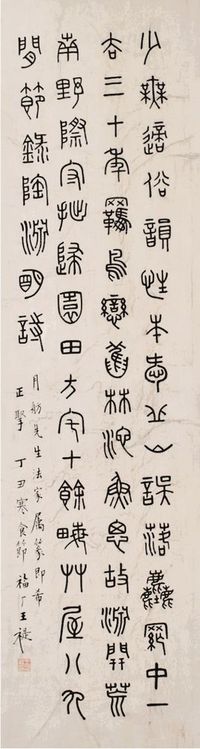 少無適俗韻性本愛丘山誤落塵網中一
去三十年羈鳥戀舊林池魚思故淵開荒
南野際守拙歸園田方宅十餘畝艸屋八九
間節錄陶淵明詩
月舫先生法家屬篆即希
正 丁丑寒食節 福厂王禔